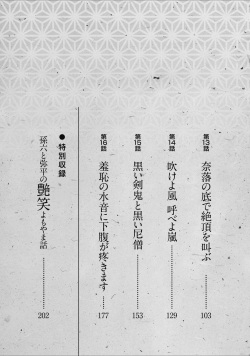 第13話 奈落の底で絶頂を叫ぶ 103
第14話 吹けよ風 呼べよ嵐 129
第15話 黒い剣鬼と黒い尼僧 153
第16話 羞恥の水音に下腹が疼きます 177
●特別収録
孫六と弥平の艶笑よもやま話 202